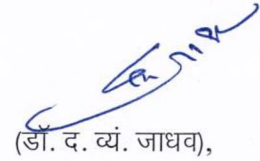 (डॉ. द. व्यं. जाधव),